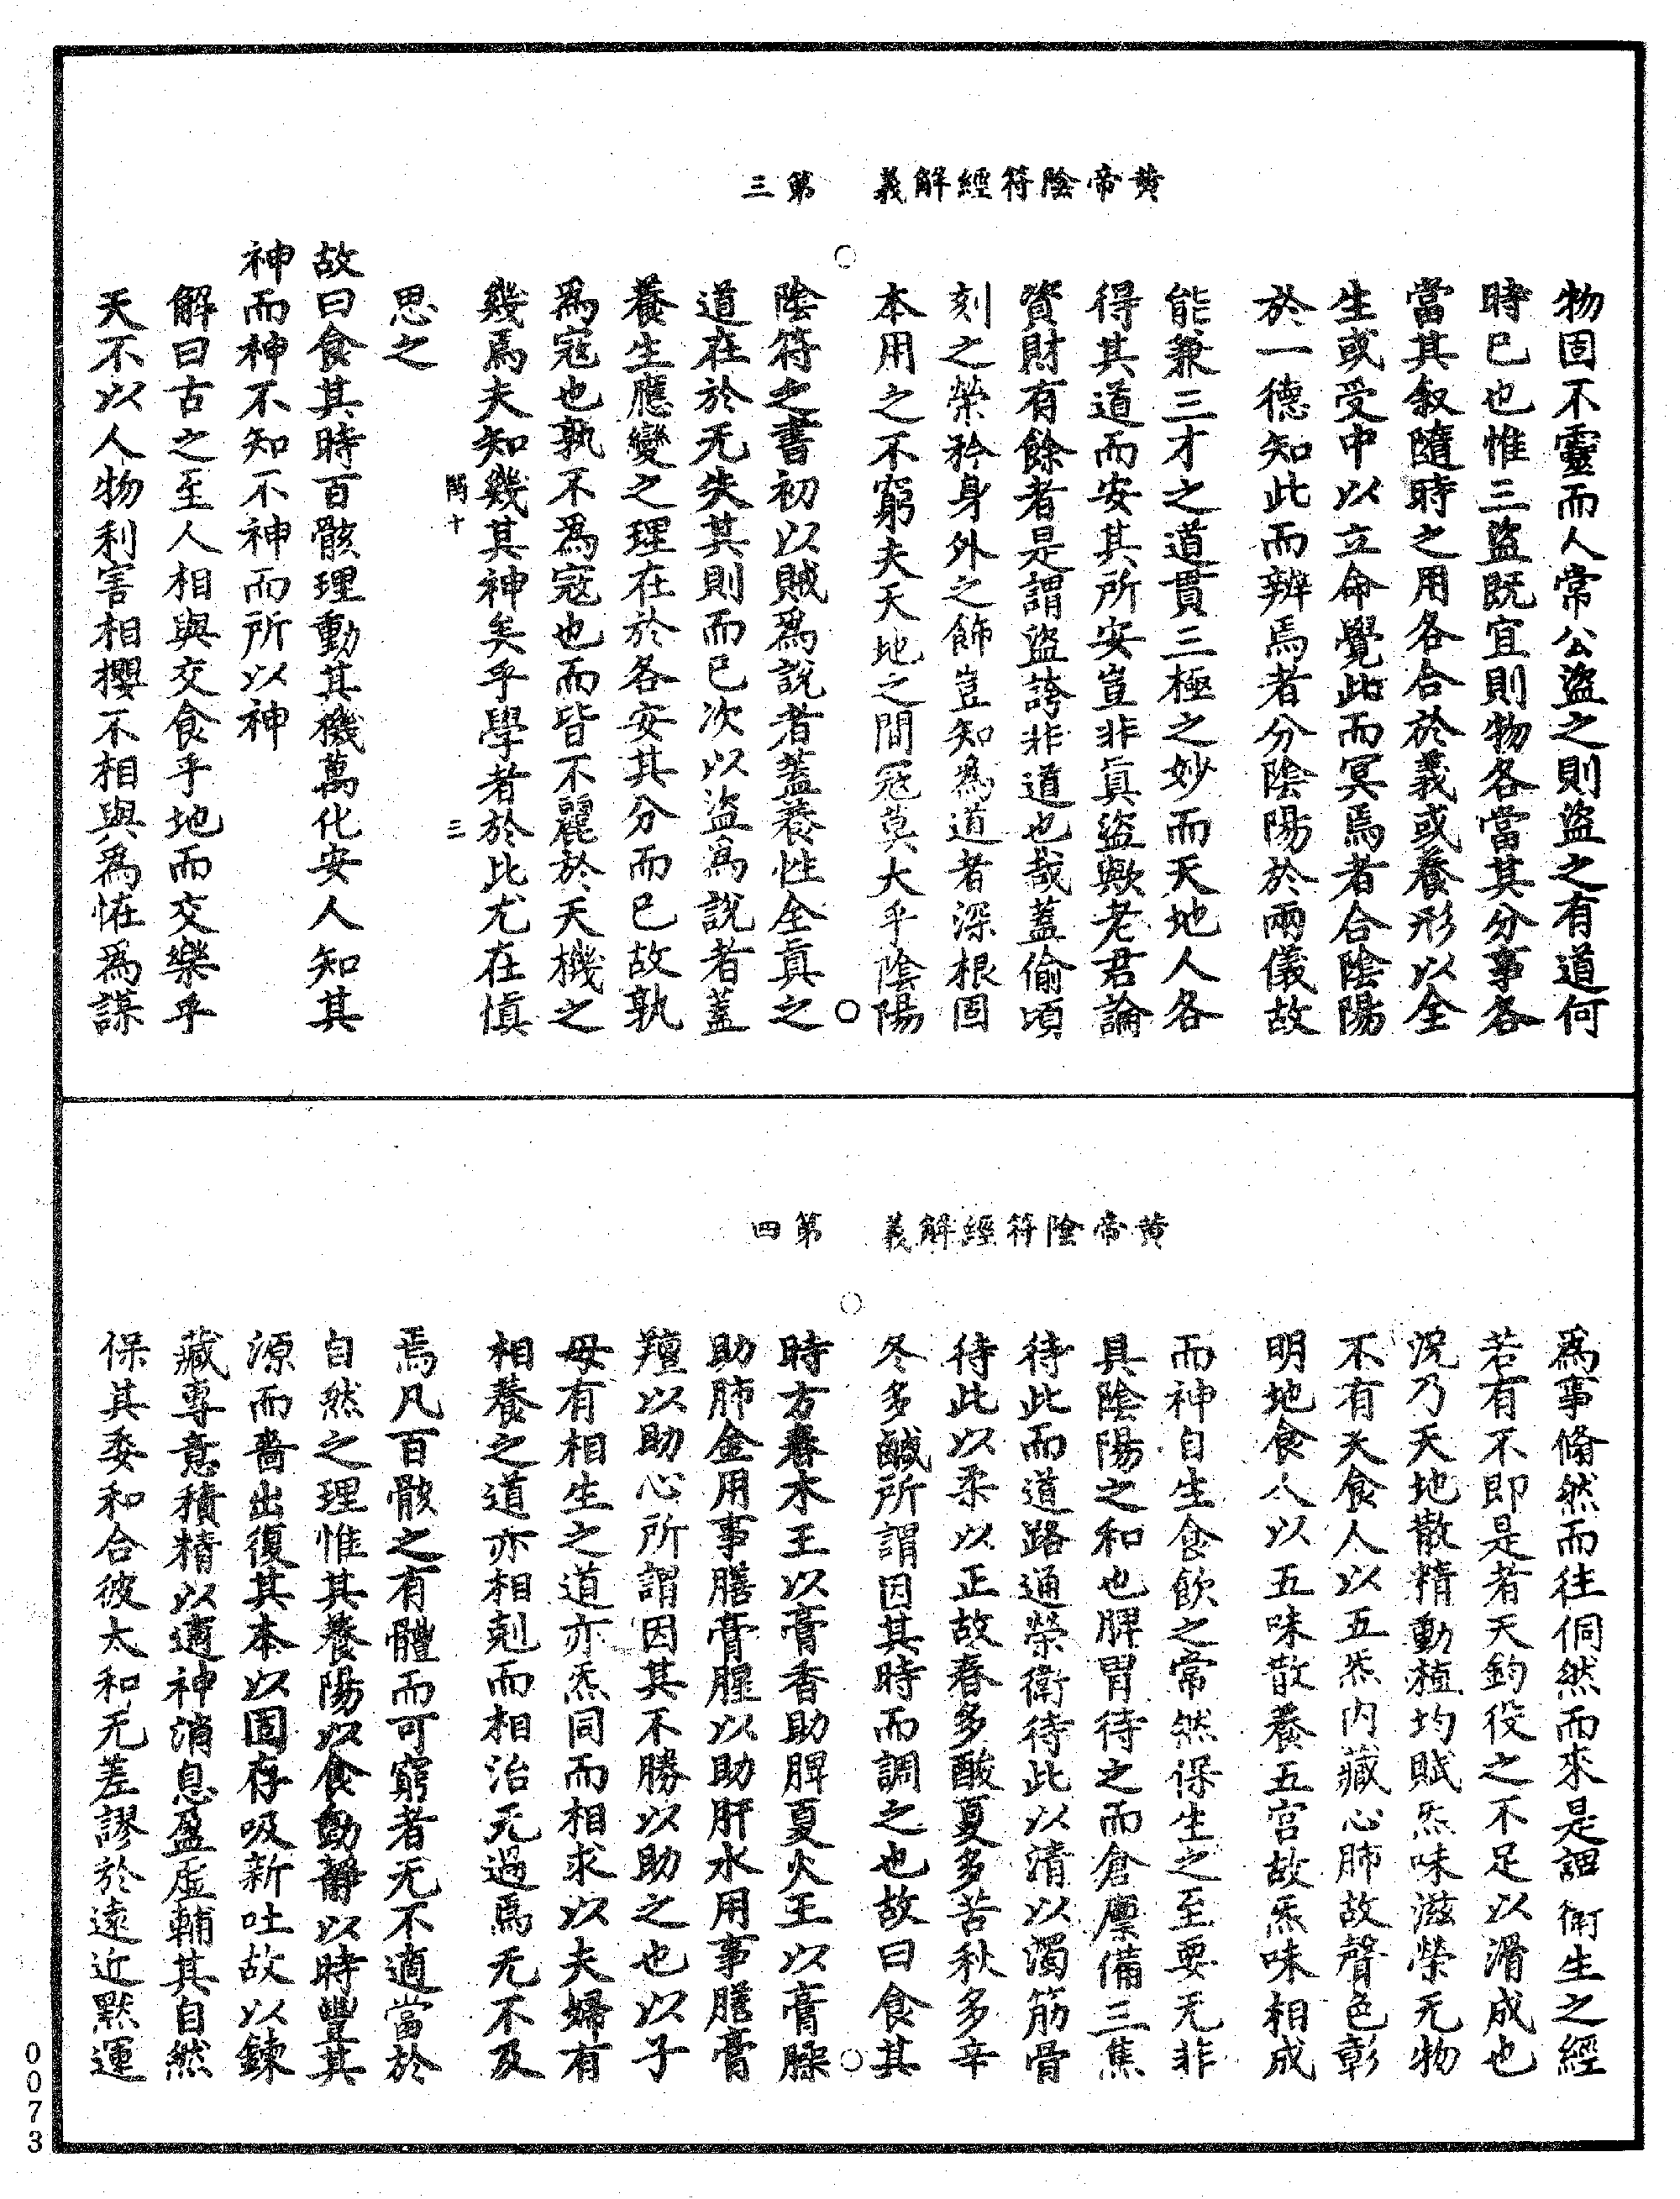 黃帝陰符經解義　第三
物固不靈而人常公盜之則盜之有道何
時已也惟三盜既宜則物各當其分事各
當其叙隨時之用各合於義或養形以全
生或受中以立命覺此而冥焉者合陰陽
於一德知此而辨焉者分陰陽於兩儀故
能兼三才之道貫三極之妙而天地人各
得其道而安其所安豈非真盜歟老君論
資財有餘者是謂盜誇非道也哉蓋偷頃
刻之榮矜身外之飾豈知為道者深根固
本用之不窮夫天地之間冦莫大乎陰陽
陰符之書初以賊為說者蓋養性全真之
道在於无失其則而已次以盜為說者蓋
養生應變之理在於各安其分而已故孰
為寇也孰不為寇也而皆不麗於天機之
幾焉夫知幾其神矣乎學者於比尤在慎
閏十　三
思之
故曰食其時百骸理動其機萬化安人知其
神而神不知不神而所以神
解曰古之至人相與交食乎地而交樂乎
天不以人物利害相攖不相與為恠為謀
黃帝陰符經解義　第四
為事翛然而往侗然而來是謂衛生之經
若有不即是者天鈞役之不足以滑成也
況乃天地散精動植均賦炁味滋榮无物
不有天食人以五炁内藏心肺故聲色彰
明地食人以五味散養五宮故炁味相成
而神自生食飲之常然保生之至要无非
具陰陽之和也脾胃待之而倉廩備三焦
待此而道路通榮衛待此以清以濁筋骨
待此以柔以正故春多酸夏多苦秋多辛
冬多鹹所謂因其時而調之也故曰食其
時方春木王以膏香助脾夏火王以膏臊
助肺金用事膳膏腥以助肝水用事膳膏
羶以助心所謂因其不勝以助之也以子
母有相生之道亦炁同而相求以夫婦有
相養之道亦相剋而相治无過焉无不及
焉凡百骸之有體而可窮者无不適當於
自然之理惟其養陽以食動靜以時豐其
源而嗇出復其本以固存吸新吐故以鍊
藏專意積精以適神消息盈虛輔其自然
保其委和合彼太和无差謬於遠近默運
0073